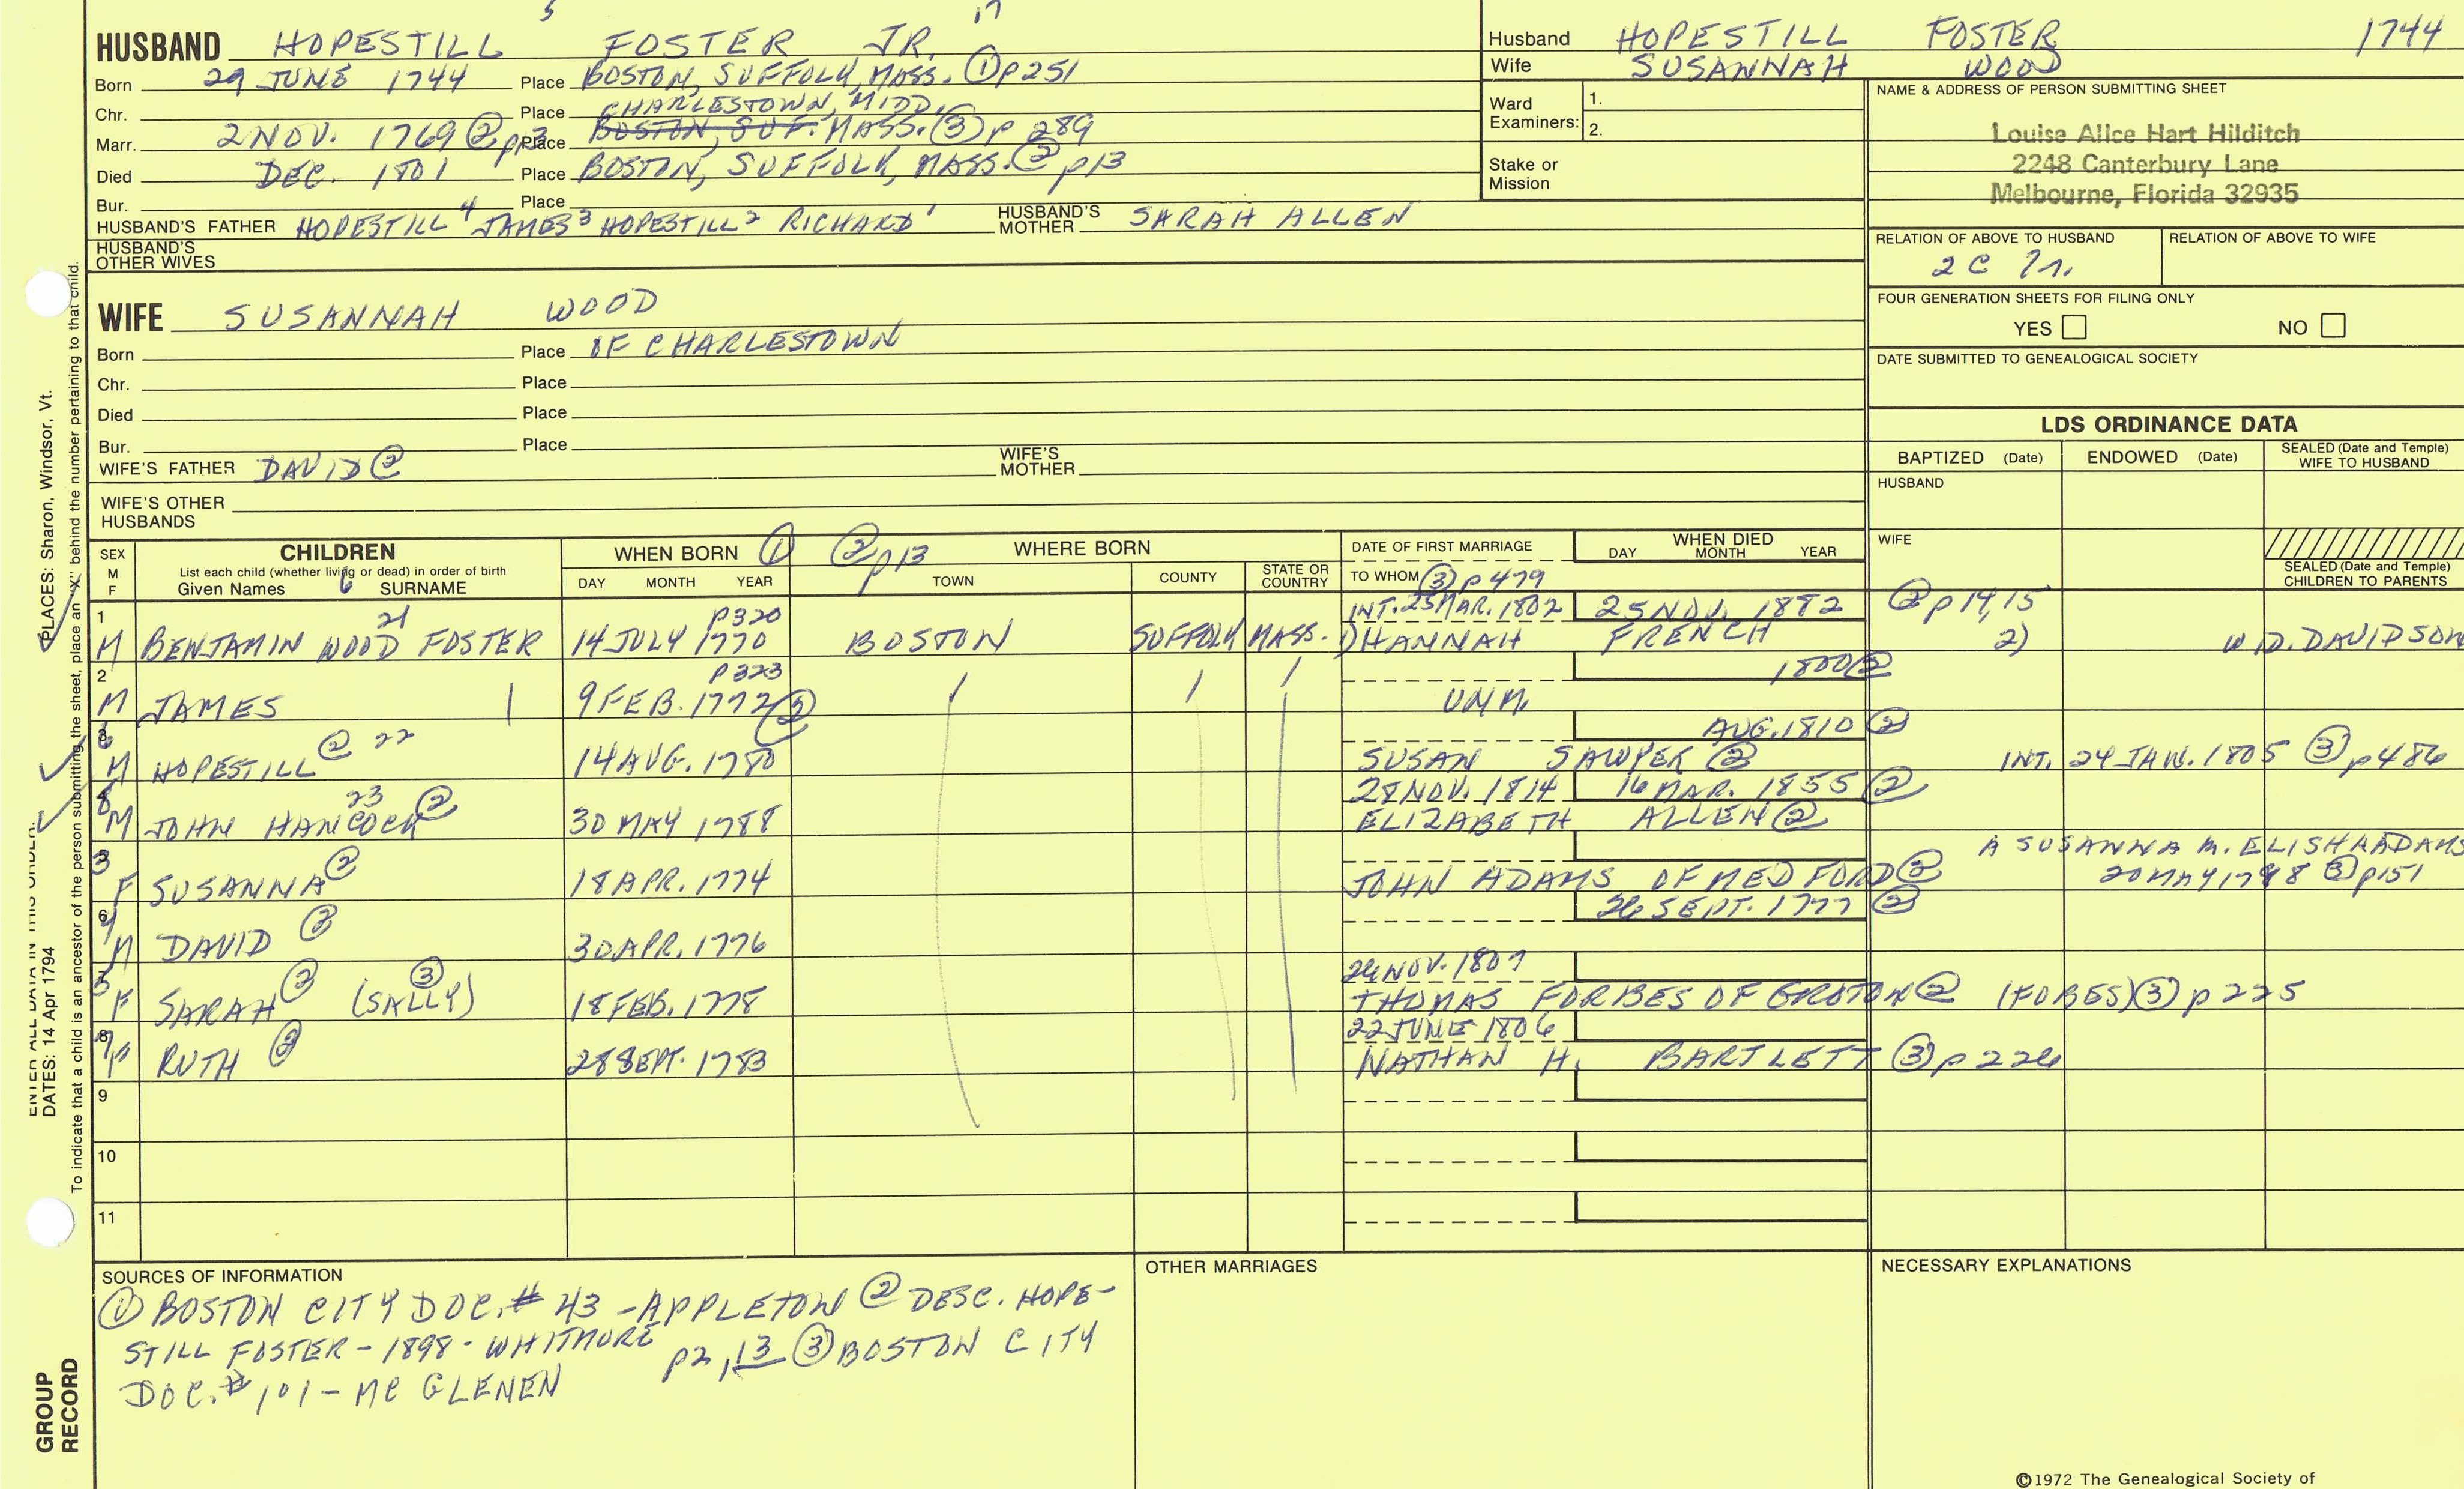 5 17
HUSBAND HOPESTILL FOSTER JR.
Born 29 JUNE 1744 Place BOSTON, SUFFOLK, MASS. ① P251
Chr. Place CHARLESTOWN, MIDD,
Marr. 2 NOV. 1769 ② p13 Place BOSTON, SUF. MASS. ③ p 289
Died DEC. 1801 Place BOSTON, SUFFOLK, MASS. ② p13
Bur. Place
HUSBAND'S FATHER HOPESTILL 4 JAMES 3 HOPESTILL 2 RICHARD 1 HUSBAND'S MOTHER SARAH ALLEN
HUSBAND'S OTHER WIVES
Husband HOPESTILL FOSTER 1744
Wife SUSANNAH WOOD
Ward Examiners: 1.
2.
Stake or Mission
NAME & ADDRESS OF PERSON SUBMITTING SHEET
Louise Alice Hart Hilditch
2248 Canterbury Lane
Melbourne, Florida 32935
RELATION OF ABOVE TO HUSBAND RELATION OF ABOVE TO WIFE
2 C
FOUR GENERATION SHEETS FOR FILING ONLY
YES NO
DATE SUBMITTED TO GENEALOGICAL SOCIETY
WIFE SUSANNAH WOOD
Born Place OF CHARLESTOWN
Chr. Place
Died Place
Bur. Place
WIFE'S FATHER DAVID ② WIFE'S MOTHER
WIFE'S OTHER HUSBANDS
LDS ORDINANCE DATA
BAPTIZED (Date) ENDOWED (Date) SEALED (Date and Temple) WIFE TO HUSBAND
HUSBAND
WIFE
SEALED (Date and Temple) CHILDREN TO PARENTS
SEX M F
CHILDREN
List each child (whether living or dead) in order of birth
Given Names 6 SURNAME
WHEN BORN ① ② p13 WHERE BORN
DAY MONTH YEAR TOWN COUNTY STATE OR COUNTRY
DATE OF FIRST MARRIAGE WHEN DIED
DAY MONTH YEAR
TO WHOM ③ p 479
1 21 P320 INT. 25 MAR. 1802 25 NOV. 1882 ② p 14, 15
M BENJAMIN WOOD FOSTER 14 JULY 1770 BOSTON SUFFOLK MASS. 1) HANNAH FRENCH 2) WD. DAVIDSON
2 P323 1800 ②
M JAMES 9 FEB. 1772 ② UNM.
3 6 AUG. 1810 ②
M HOPESTILL ② 22 14 AUG. 1780 SUSAN SAWYER ② INT. 24 JAN. 1805 ③ p486
8 23 28 NOV. 1814 16 MAR. 1855 ②
M JOHN HANCOCK ② 30 MAY 1788 ELIZABETH ALLEN ②
3 A SUSANNA M. ELISHA ADAMS
F SUSANNA ② 18 APR. 1774 JOHN ADAMS OF MEDFORD ② 20 MAY 1798 ③ p151
6 4 26 SEPT. 1777 ②
M DAVID ② 30 APR. 1776
5 24 NOV. 1807
F SARAH ② (SALLY) ③ 18 FEB. 1778 THOMAS FORBES OF GROTON ② (FOBES) ③ p 225
8 7 22 JUNE 1806
F RUTH ② 28 SEPT. 1783 NATHAN H. BARTLETT ③ p 224
9
10
11
SOURCES OF INFORMATION
① BOSTON CITY DOC. # 43 - APPLETON ② DESC. HOPE-
STILL FOSTER - 1898 - WHITMORE p2, 13 ③ BOSTON CITY
DOC. # 101 - MC GLENEN
OTHER MARRIAGES
NECESSARY EXPLANATIONS
©1972 The Genealogical Society of
PLACES: Sharon, Windsor, Vt.
ENTER ALL DATA IN THIS ORDER:
DATES: 14 Apr 1794
To indicate that a child is an ancestor of the person submitting the sheet, place an "X" behind the number pertaining to that child.
GROUP RECORD